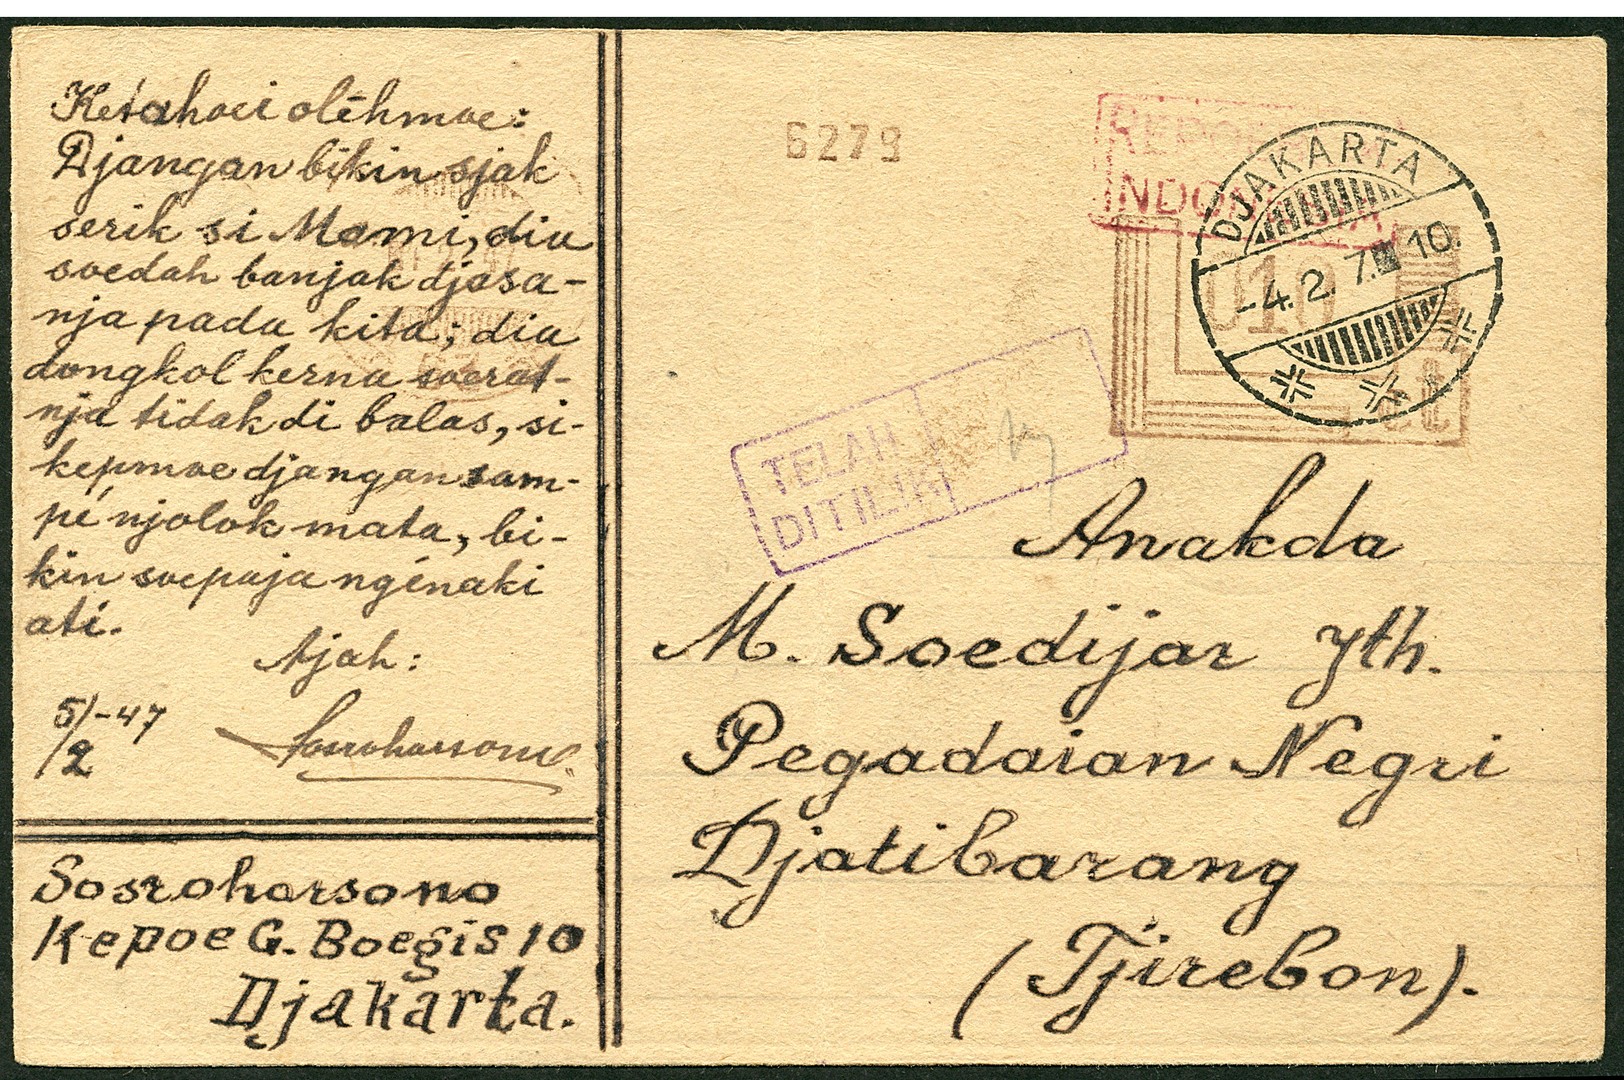 Ketahoei oléhmoe:
Djangan bikin sjak
serik si Mami, dia
soedah banjak djasa-
nja pada kita; dia
dongkol kerna soerat-
nja tidak di balas, si-
kepmoe djangan sam-
pé njolok mata, bi-
kin soepaja ngénaki
ati.
Ajah:
5/2-47
Sosroharsono
Sosroharsono
Kepoe G. Boegis 10
Djakarta.
6279
REPOEBLIK
INDONESIA
10
ct
DJAKARTA
-4.2.7. 10.
TELAH
DITILIK
Anakda
M. Soedijar Yth.
Pegadaian Negri
Djatibarang
(Tjirebon).